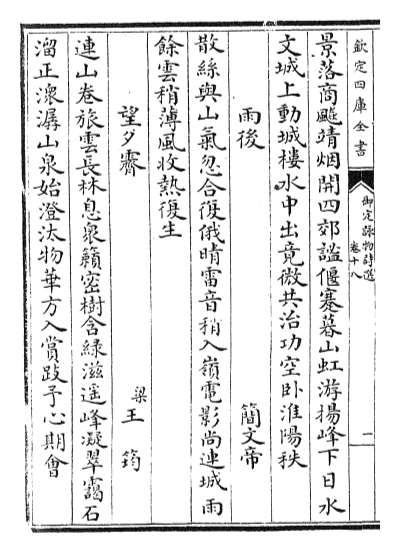 欽定四庫全書
御定詠物詩選
卷十八
一
景落商飈靖烟開四郊謐偃蹇暮山虹游揚峰下日水
文城上動城樓水中出竟微共治功空卧淮陽秩
雨後
簡文帝
散絲與山氣忽合復俄晴雷音稍入嶺電影尚連城雨
餘雲稍薄風收熱復生
望夕霽
梁
王筠
連山卷旅雲長林息衆籟密樹含緑滋遥峰凝翠靄石
溜正潨潺山泉始澄汰物華方入賞跂予心期會